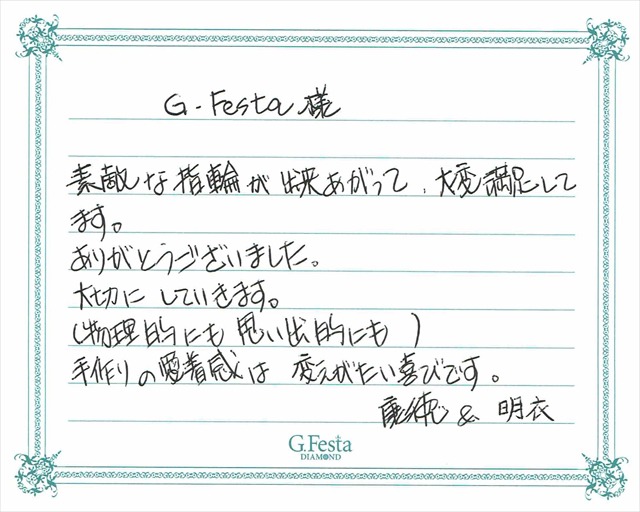 G-Festa 様
素敵な指輪が出来あがって、大変満足して
ます。
ありがとうございました。
大切にしていきます。
(物理的にも思い出的にも)
手作りの愛着感は変えがたい喜びです。
& 明衣
G.Festa
DIAMOND